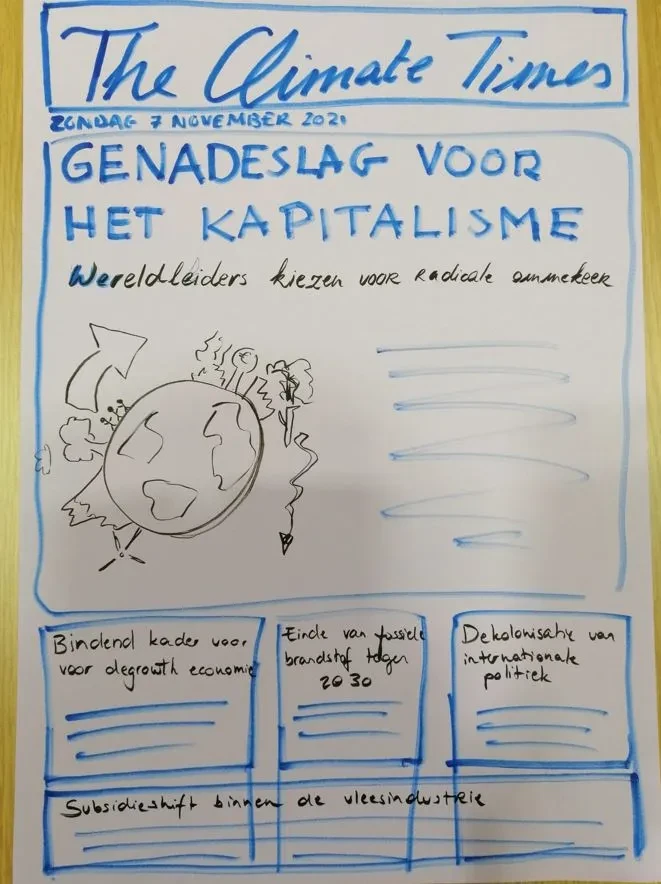 The Climate Times
ZONDAG 7 NOVEMBER 2021
GENADESLAG VOOR
HET KAPITALISME
Wereldleiders kiezen voor radicale ommekeer
€
Bindend kader voor
voor degrowth economie
Einde van fossiele
brandstof tegen
2030
Dekolonisatie van
internationale
politiek
Subsidieshift binnen de vleesindustrie